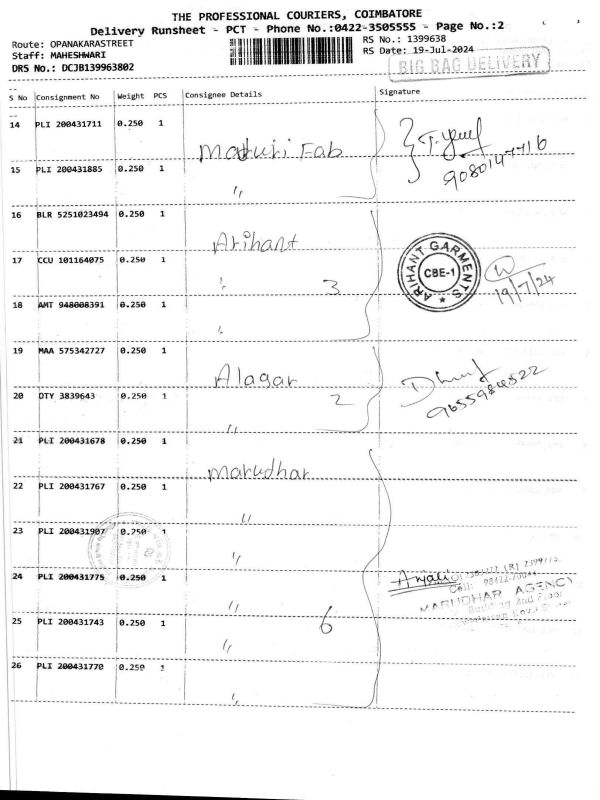 THE PROFESSIONAL COURIERS, COIMBATORE
Delivery Runsheet - PCT - Phone No.:0422-3505555 - Page No.:2
Route: OPANAKARASTREET
RS No.: 1399638
Staff: MAHESHWARI
RS Date: 19-Jul-2024
DRS No.: DCJB139963802
BIG BAG DELIVERY
S No Consignment No Weight PCS Consignee Details Signature
14 PLI 200431711 0.250 1 Maduri Fab
9080147716
15 PLI 200431885 0.250 1 "
16 BLR 5251023494 0.250 1 Arihant
ARIHANT GARMENTS
CBE-1
19/7/24
17 CCU 101164075 0.250 1 " 3
18 AMT 948008391 0.250 1 "
19 MAA 575342727 0.250 1 Alagar
20 DTY 3839643 0.250 1 " 2
21 PLI 200431678 0.250 1 Marudhar
22 PLI 200431767 0.250 1 "
23 PLI 200431907 0.250 1 "
24 PLI 200431775 0.250 1 "
Anjali
Cell: 98422-70044
MARUDHAR AGENCY
25 PLI 200431743 0.250 1 " 6
26 PLI 200431770 0.250 1 "